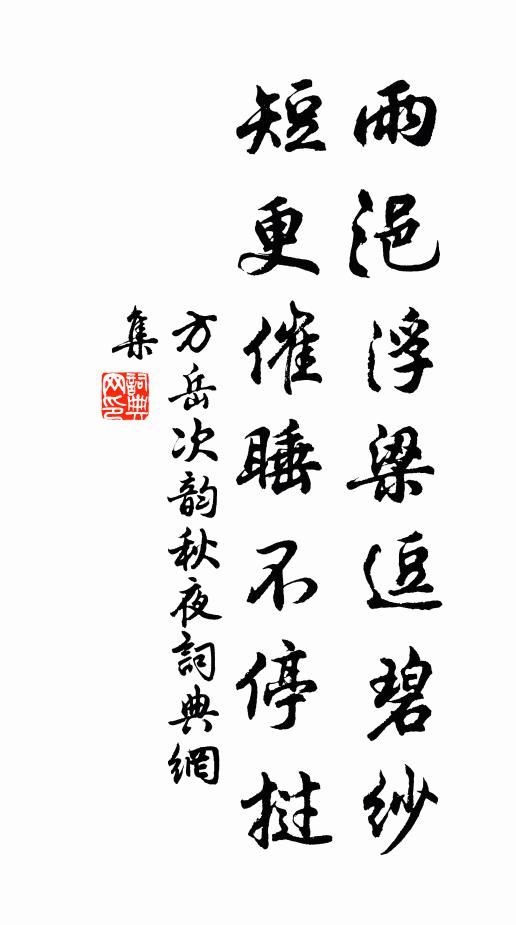 雨浥浮梁逗碧纱
短更催睡不停挝
方岳次韵秋夜詞典網
集
詞典网印